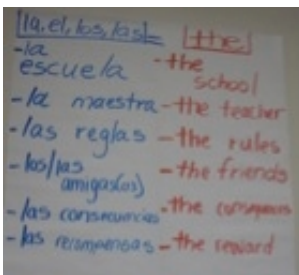 la, el, los, las = the
-la escuela -the school
-la maestra -the teacher
-las reglas -the rules
-los/las amigas(os) -the friends
-las consecuencias -the consequences
-las recompensas -the reward